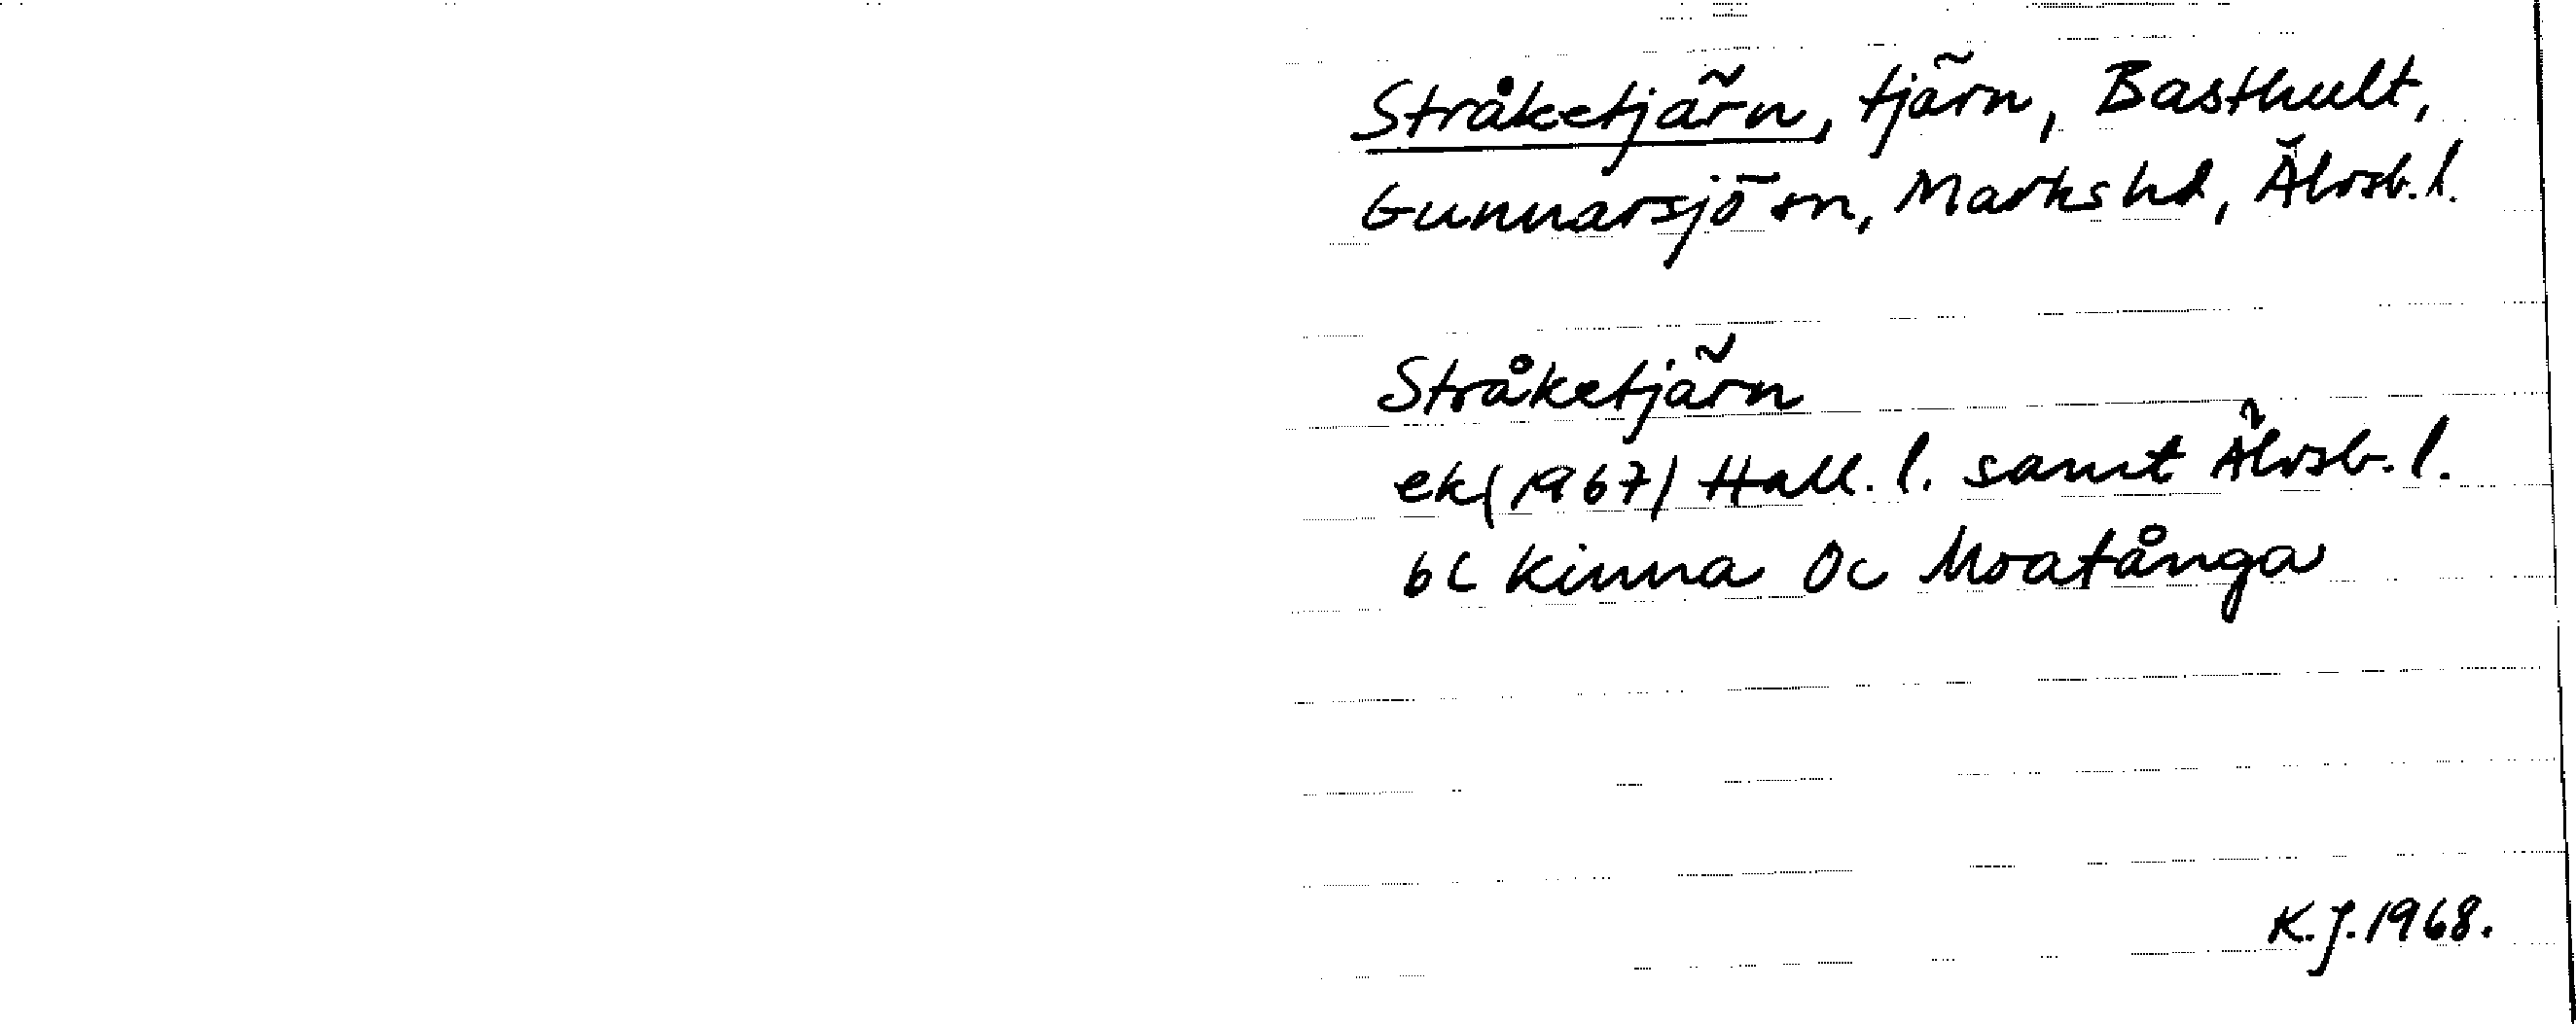 Stråketjärn, tjärn, Basthult,
Gunnarsjö sn, Marks hd, Älvsb. l.
Stråketjärn
ek (1967) Hall. l. samt Älvsb. l.
6C Kinna 0c Moatånga
K.J. 1968.